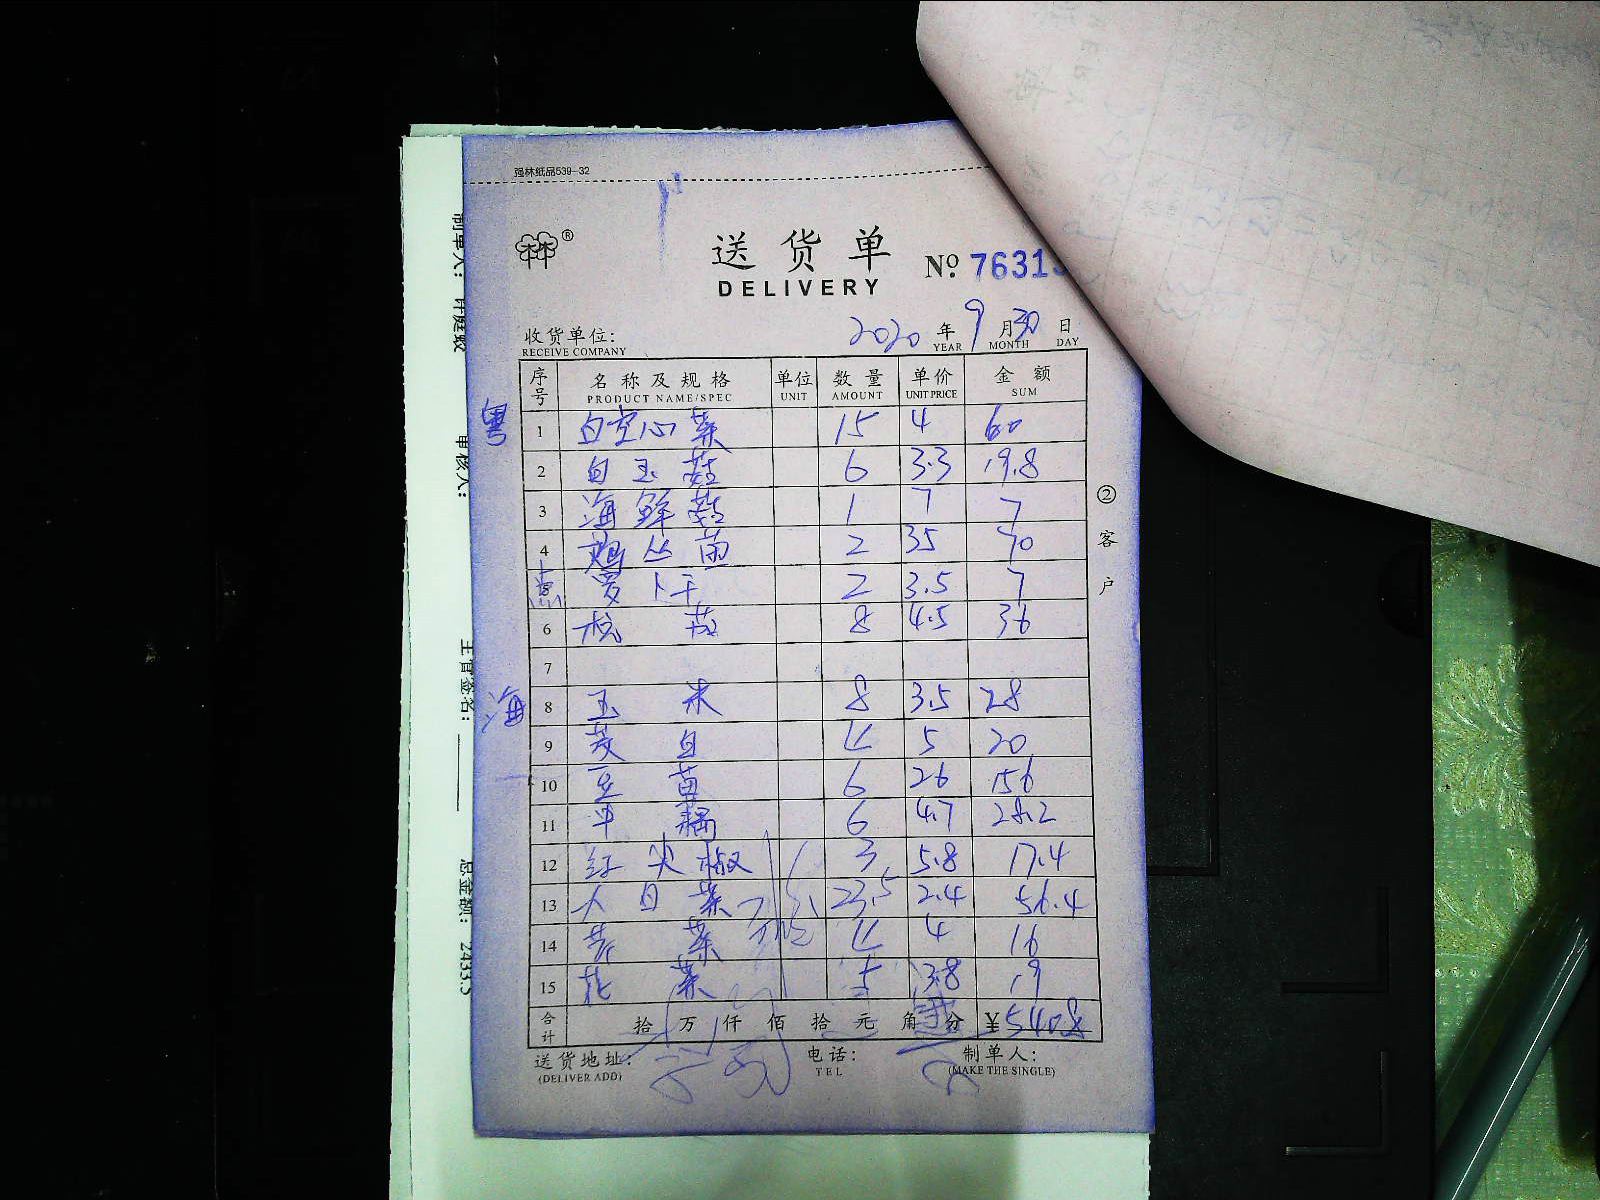 强林纸品539-32
林林®
送货单
DELIVERY
№ 7631
收货单位:
RECEIVE COMPANY
2020 年 9 月 30 日
YEAR MONTH DAY
序号 名称及规格 单位 数量 单价 金额
PRODUCT NAME/SPEC UNIT AMOUNT UNIT PRICE SUM
粤 1 白空心菜 15 4 60
2 白玉菇 6 3.3 19.8
3 海鲜菇 1 7 7
4 鸡丛菌 2 35 70
点 5 罗卜干 2 3.5 7
6 8 4.5 36
7
海 8 玉米 8 3.5 28
9 茭白 4 5 20
10 豆苗 6 26 156
11 平藕 6 4.7 28.2
12 红尖椒 3 5.8 17.4
13 大白菜 23.5 2.4 56.4
14 菜 4 4 16
15 菜 5 3.8 19
合计 拾 万 仟 佰 拾 元 角 分 ¥540.8
送货地址: 电话: 制单人:
(DELIVER ADD) TEL (MAKE THE SINGLE)
②客户
制单人: 计庭蛟
审核人:
主管签名:
总金额: 2433.5